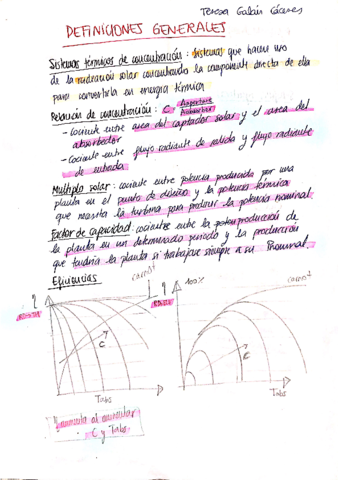 Teresa Galán Cáceres
DEFINICIONES GENERALES
Sistemas térmicos de concentración: sistemas que hacen uso
de la radiación solar concentrando la componente directa de ella
para convertirla en energía térmica
Relación de concentración: C = Aapertura
Aabsorbedor
- cociente entre area del captador solar y el area del
absorbedor
- cociente entre flujo radiante de salida y flujo radiante
de entrada
Multiplo solar: cociente entre potencia producida por una
planta en el punto de diseño y la potencia térmica
que necesita la turbina para producir la potencia nominal
Factor de capacidad: cocientes entre la producción de
la planta en un determinado periodo y la producción
que tendría la planta si trabajase siempre a su Pnominal.
Eficiencias
carnot
carnot
η
η
100%
C
C
Tabs
Tabs
aumenta al aumentar
C y Tabs